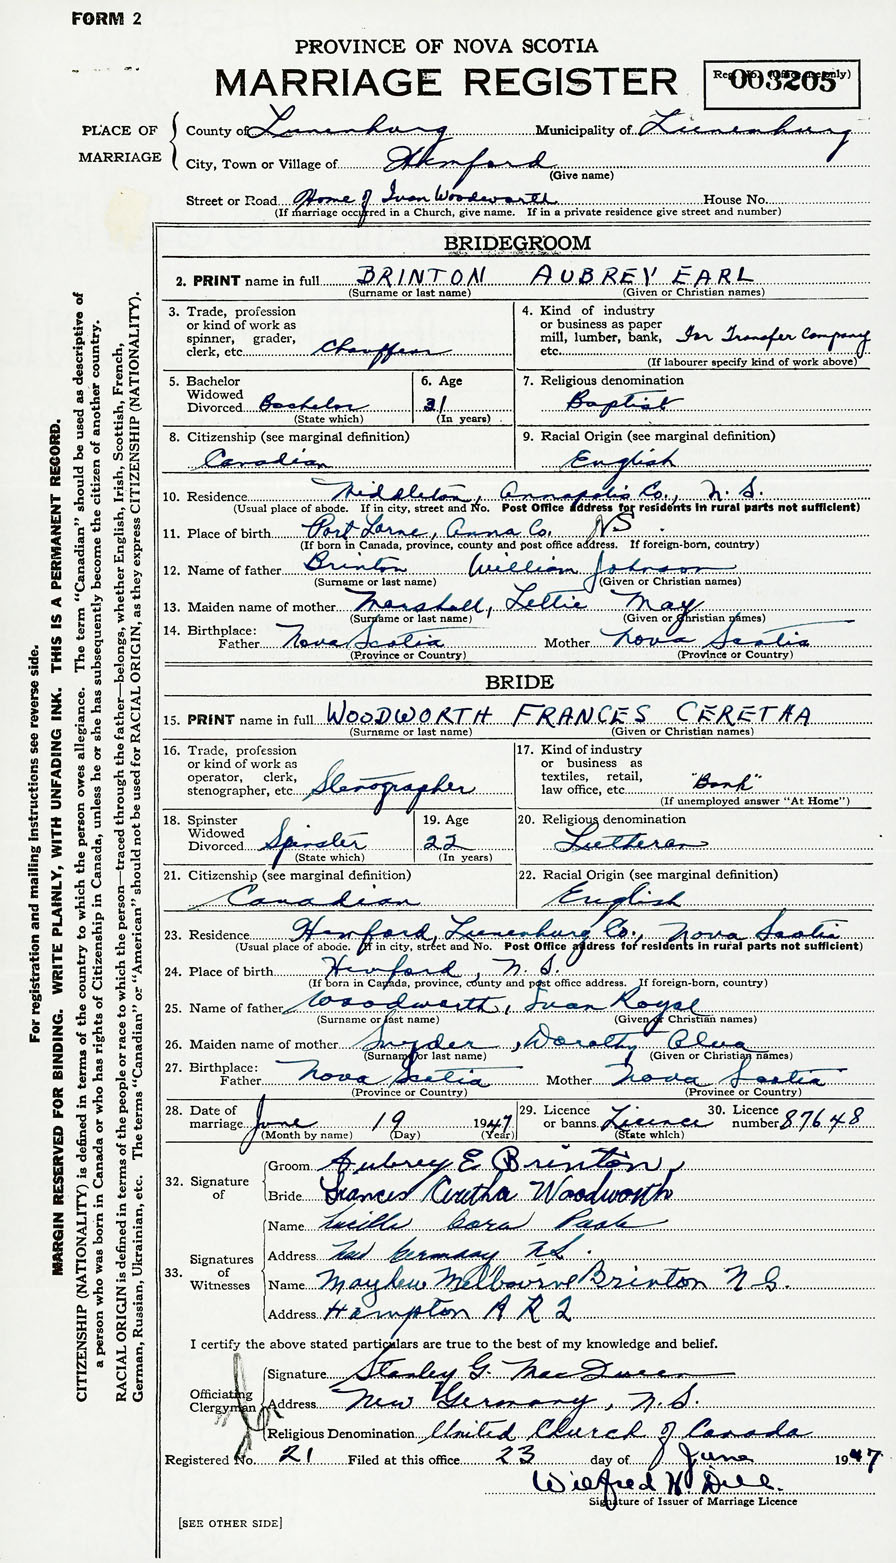 FORM 2
PROVINCE OF NOVA SCOTIA
MARRIAGE REGISTER
Reg. No. (Office use only)
003205
PLACE OF MARRIAGE
County of Lunenburg Municipality of Lunenburg
City, Town or Village of Hemford
(Give name)
Street or Road Home of Ivan Woodworth House No.
(If marriage occurred in a Church, give name. If in a private residence give street and number)
BRIDEGROOM
2. PRINT name in full BRINTON AUBREY EARL
(Surname or last name) (Given or Christian names)
3. Trade, profession or kind of work as spinner, grader, clerk, etc. Chauffeur
4. Kind of industry or business as paper mill, lumber, bank, etc. for Transfer Company
(If labourer specify kind of work above)
5. Bachelor Widowed Divorced Bachelor
(State which)
6. Age 21
(In years)
7. Religious denomination
Baptist
8. Citizenship (see marginal definition)
Canadian
9. Racial Origin (see marginal definition)
English
10. Residence Middleton, Annapolis Co., N. S.
(Usual place of abode. If in city, street and No. Post Office address for residents in rural parts not sufficient)
11. Place of birth Port Lorne, Anna Co. NS
(If born in Canada, province, county and post office address. If foreign-born, country)
12. Name of father Brinton William Johnson
(Surname or last name) (Given or Christian names)
13. Maiden name of mother Marshall, Lettie May
(Surname or last name) (Given or Christian names)
14. Birthplace: Father Nova Scotia Mother Nova Scotia
(Province or Country) (Province or Country)
BRIDE
15. PRINT name in full WOODWORTH FRANCES CERETHA
(Surname or last name) (Given or Christian names)
16. Trade, profession or kind of work as operator, clerk, stenographer, etc. Stenographer
17. Kind of industry or business as textiles, retail, law office, etc. "Bank"
(If unemployed answer "At Home")
18. Spinster Widowed Divorced Spinster
(State which)
19. Age 22
(In years)
20. Religious denomination
Lutheran
21. Citizenship (see marginal definition)
Canadian
22. Racial Origin (see marginal definition)
English
23. Residence Hemford, Lunenburg Co., Nova Scotia
(Usual place of abode. If in city, street and No. Post Office address for residents in rural parts not sufficient)
24. Place of birth Hemford, N. S.
(If born in Canada, province, county and post office address. If foreign-born, country)
25. Name of father Woodworth, Ivan Royse
(Surname or last name) (Given or Christian names)
26. Maiden name of mother Snyder, Dorothy
(Surname or last name) (Given or Christian names)
27. Birthplace: Father Nova Scotia Mother Nova Scotia
(Province or Country) (Province or Country)
28. Date of marriage June 19 1947
(Month by name) (Day) (Year)
29. Licence or banns Licence
(State which)
30. Licence number 87648
32. Signature of
Groom Aubrey E Brinton
Bride Frances Ceretha Woodworth
33. Signatures of Witnesses
Name Lucille Cora
Address New Germany N.S.
Name Mayhew Melbourne Brinton N S.
Address Hampton R R 2
I certify the above stated particulars are true to the best of my knowledge and belief.
Officiating Clergyman
Signature Stanley G. MacQueen
Address New Germany, N.S.
Religious Denomination United Church of Canada
Registered No. 21 Filed at this office 23 day of June 1947
Wilfred H. Dill.
Signature of Issuer of Marriage Licence
[SEE OTHER SIDE]
For registration and mailing instructions see reverse side.
MARGIN RESERVED FOR BINDING. WRITE PLAINLY, WITH UNFADING INK. THIS IS A PERMANENT RECORD.
CITIZENSHIP (NATIONALITY) is defined in terms of the country to which the person owes allegiance. The term "Canadian" should be used as descriptive of
a person who was born in Canada or who has rights of Citizenship in Canada, unless he or she has subsequently become the citizen of another country.
RACIAL ORIGIN is defined in terms of the people or race to which the person—traced through the father—belongs, whether English, Irish, Scottish, French,
German, Russian, Ukrainian, etc. The terms "Canadian" or "American" should not be used for RACIAL ORIGIN, as they express CITIZENSHIP (NATIONALITY).